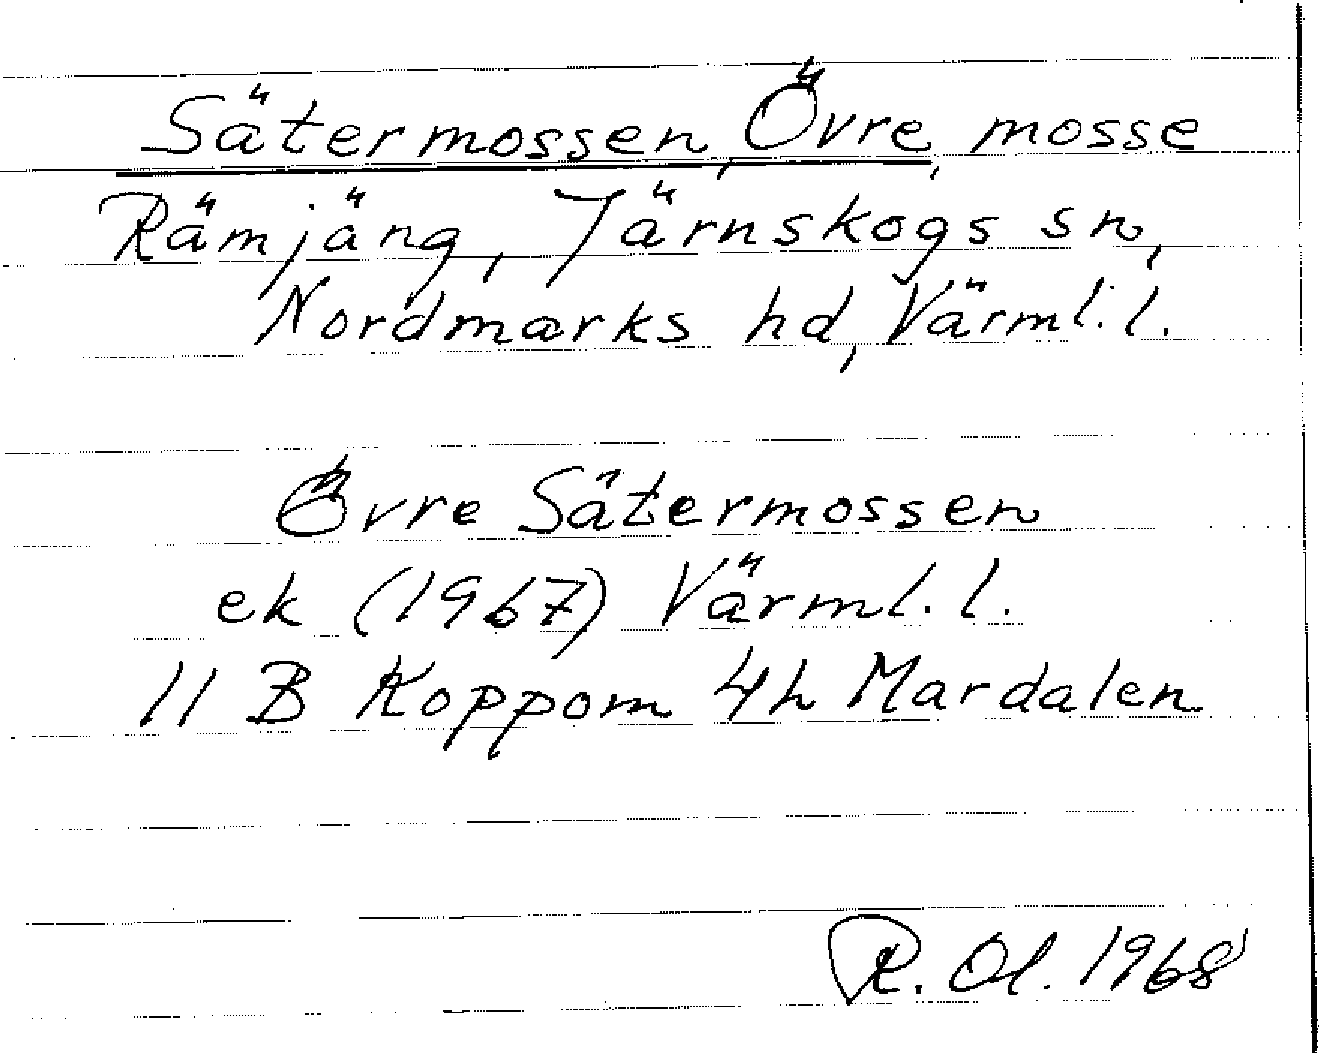 Sätermossen, Övre, mosse
Rämjäng, Järnskogs sn,
Nordmarks hd, Värml. l.
Övre Sätermossen
ek (1967) Värml. l.
11 B Koppom 4h Mardalen
R. Ol. 1968